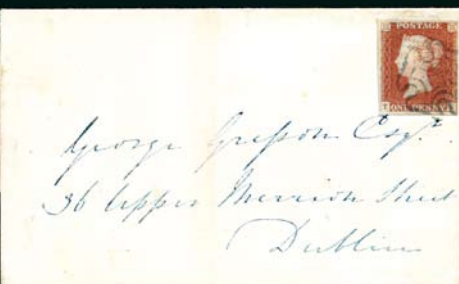 POSTAGE
ONE PENNY
George Grepson Esqr.
36 Upper Merrion Street
Dublin